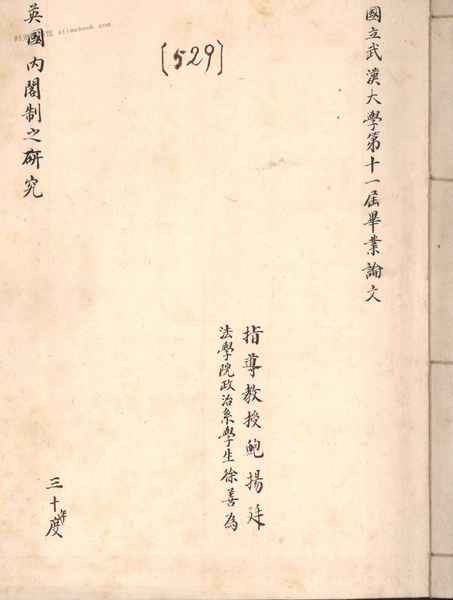 國立武漢大學第十一屆畢業論文
[529]
指導教授鮑揚廷
法學院政治系學生徐善為
英國內閣制之研究
三十年度